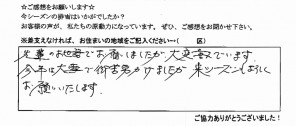 ☆ご感想をお願いします☆
今シーズンの節雪はいかがでしたか？
お客様の声が、私たちの原動力になっています。ぜひ、ご感想をお聞かせ下さい。
※差支えなければ、お住まいの地域をご記入ください→（ 区）
先輩のお世話でお願いしましたが大変喜んでいます。
今年は大雪で御苦労かけましたが来シーズンもよろしく
お願いいたします。
ご協力ありがとうございました！